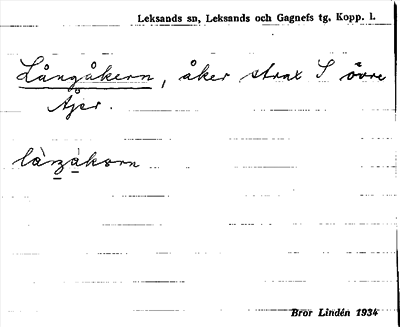 Leksands sn, Leksands och Gagnefs tg, Kopp. l.
Långåkern, åker strax S övre
Åjer.
Bror Lindén 1934